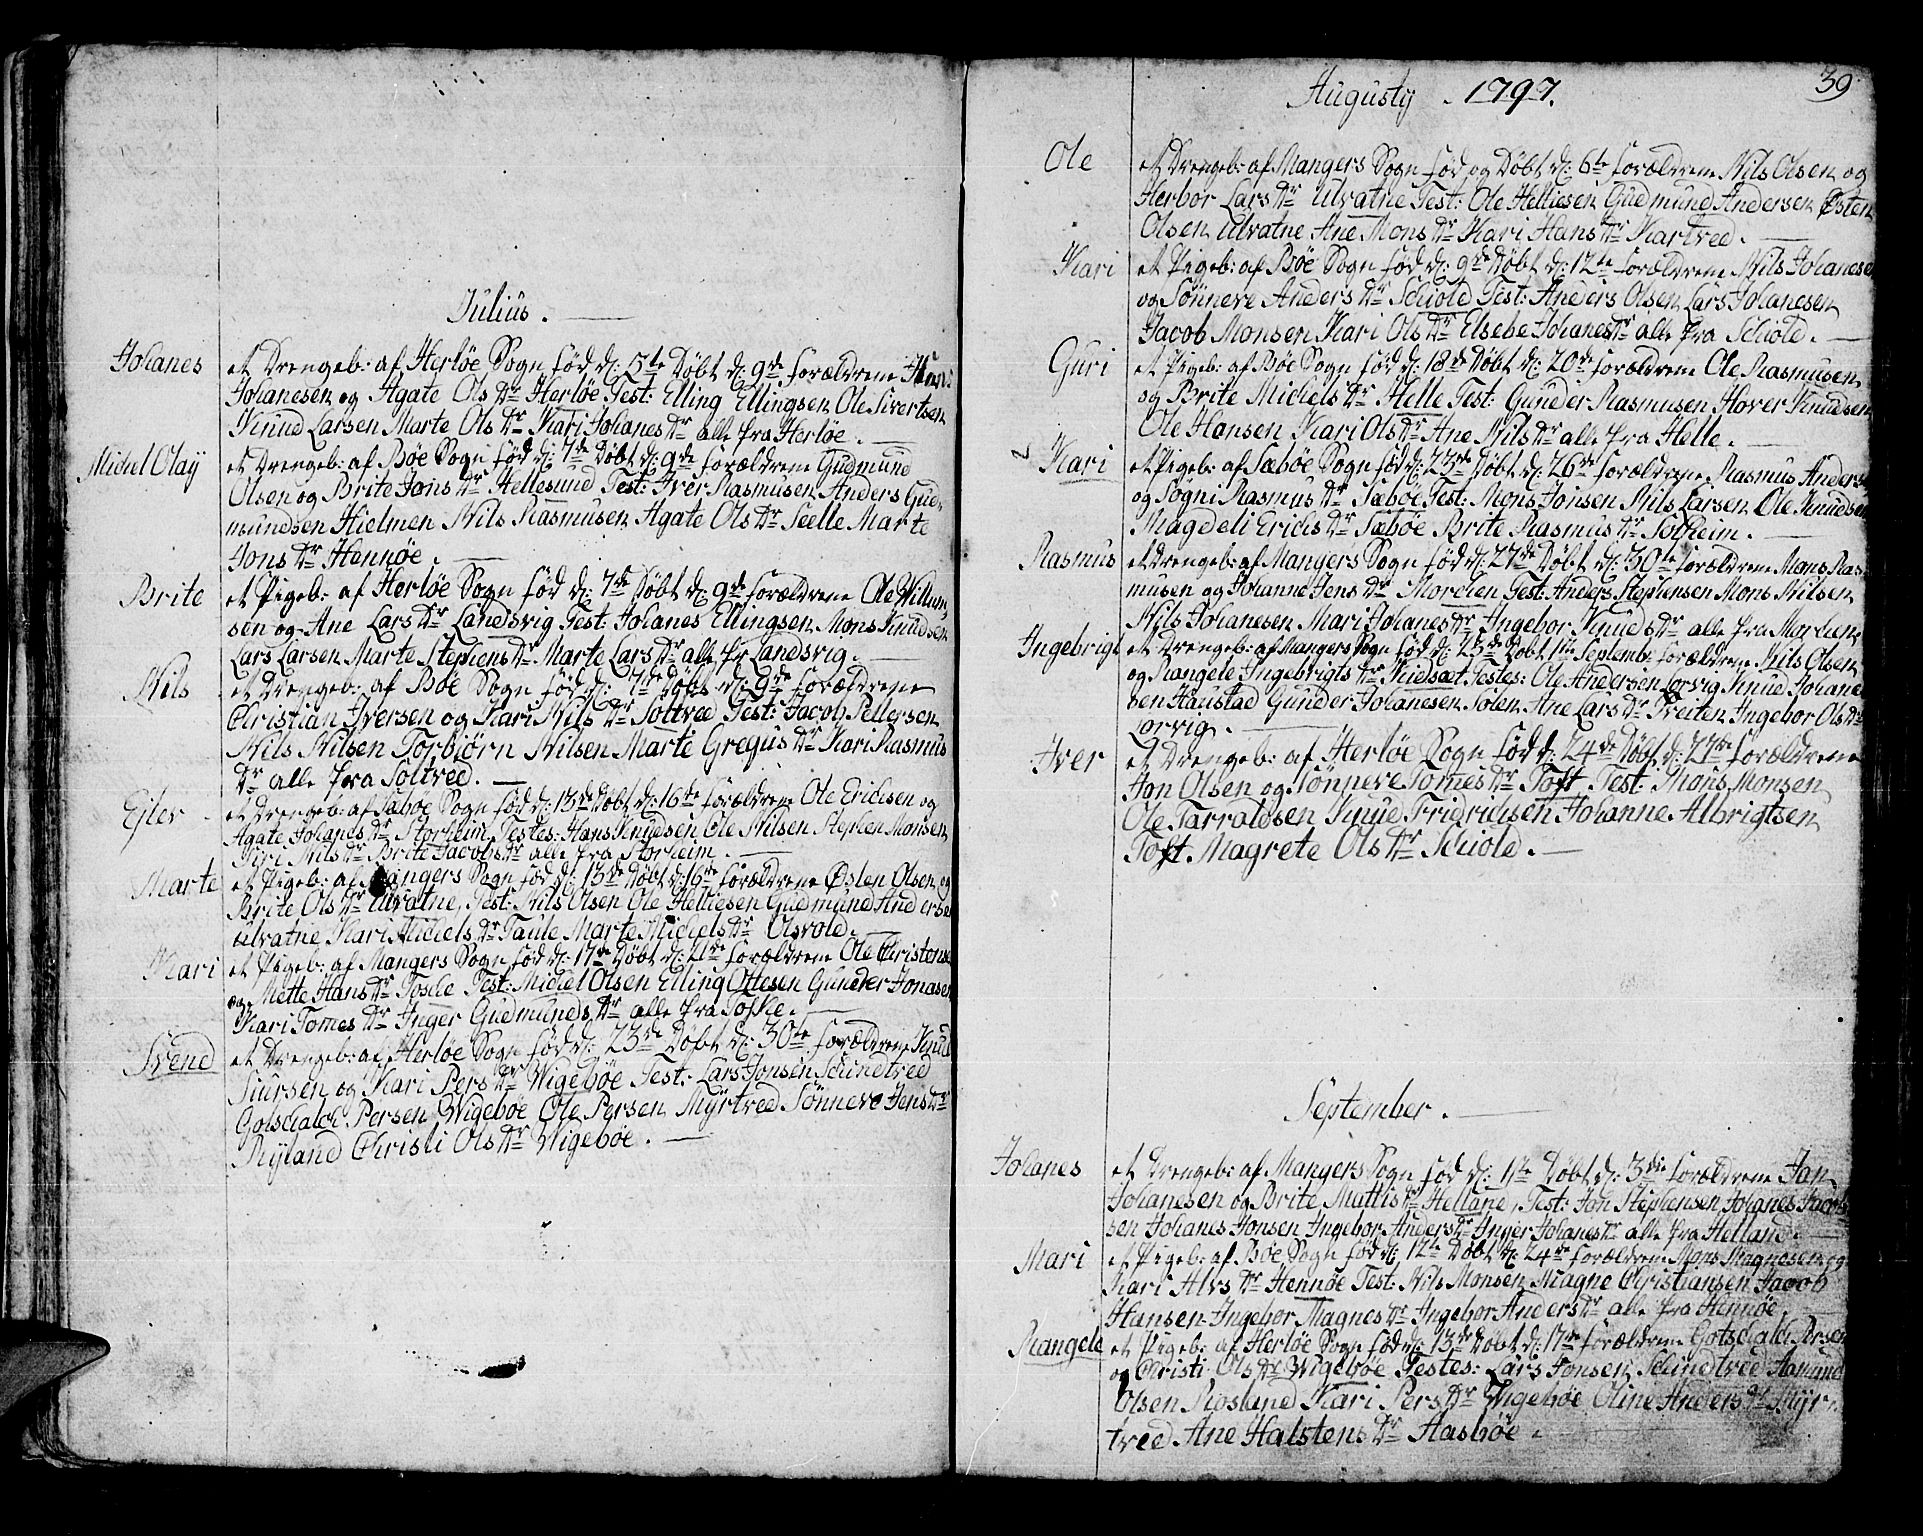 Julius.
Johanes
et Drengeb: af Herløe Sogn fød d: 5te Døbt d: 9de forældrene Hans
Johanesen og Agate Ols Dr Herløe Test: Elling Ellingsen Ole Sivertsen
Knud Larsen Marte Ols Dr Kari Johanes Dr alle fra Herløe.
Michel Olaÿ
et Drengeb: af Bøe Sogn fød d: 7de Døbt d: 9de forældrene Gudmund
Olsen og Brite Jons Dr Hellesund Test: Iver Rasmusen Anders Gud-
mundsen Hielmen Nils Rasmusen Agate Ols Dr Seelle Marte
Jons Dr Hennøe.
Brite
et Pigeb: af Herløe Sogn fød d: 7de Døbt d: 9de forældrene Ole Willum
sen og Ane Lars Dr Landsvig Test: Johanes Ellingsen Mons Knudsen
Lars Larsen Marte Stephens Dr Marte Lars Dr alle fr Landsvig.
Nils
et Drengeb: af Bøe Sogn fød d: 7de Døbt d: 9de forældrene
Christian Iversen og Kari Nils Dr Soltved Test: Jacob Pellersen
Nils Nilsen Torbjørn Nilsen Marte Gregus Dr Kari Rasmus
Dr alle fra Soltved.
Ejler
et Drengeb: af Sæbøe Sogn fød d: 13de Døbt d: 16de forældrene Ole Ericksen og
Agate Johanes Dr Storheim Testes: Hans Knudsen Ole Nilsen Stephen Monsen
Siri Nils Dr Brite Jacobs Dr alle fra Storheim.
Marte
et Pigeb: af Mangers Sogn fød d: 13de Døbt d: 16de forældrene Østen Olsen og
Brite Ols Dr Ulvatne, Test: Nils Olsen Ole Helliesen Gudmund Anderse
Ulvatne Kari Michels Dr Taule Marte Michels Dr Olsvold.
Kari
et Pigeb: af Mangers Sogn fød d: 17de Døbt d: 21de forældrene Ole Christens
og Mette Hans Dr Toske Test: Michel Olsen Elling Ottesen Gunder Jonasen
Kari Tomes Dr Inger Gudmunds Dr alle fra Toske.
Svend
et Drengeb: af Herløe Sogn fød d: 23de Døbt d: 30te forældrene Knud
Siursen og Kari Pers Dr Wigebøe Test: Lars Jonsen Skindtved
Gotschalck Persen Wigebøe Ole Persen Myrtved Sønneve Jens Dr
Ryland Christi Ols Dr Wigebøe.
39
Augusty 1797.
Ole
et Drengeb: af Mangers Sogn fød og Døbt d: 6te forældrene Nils Olsen og
Herbor Lars Dr Ulvatne Test: Ole Helliesen Gudmund Andersen Østen
Olsen Ulvatne Ane Mons Dr Kari Hans Dr Kartved.
Kari
et Pigeb: af Bøe Sogn fød d: 9de Døbt d: 12te forældrene Nils Johanesen
og Sønneve Anders Dr Schiold Test: Anders Olsen Lars Johanesen
Jacob Monsen Kari Ols Dr Elsebe Johanes Dr alle fra Schiold.
Guri
et Pigeb: af Bøe Sogn fød d: 18de Døbt d: 20de forældrene Ole Rasmusen
og Brite Michels Dr Helle Test: Gunder Rasmusen Hover Knudsen
Ole Hansen Kari Ols Dr Ane Nils Dr alle fra Helle.
Kari
et Pigeb: af Sæbøe Sogn fød d: 23de Døbt d: 26de forældrene Rasmus Anders
og Sygni Rasmus Dr Sæbøe Test: Mons Jonsen Nils Larsen Ole Knudsen
Magdeli Ericks Dr Sæbøe Brite Rasmus Dr Solheim.
Rasmus
et Drengeb: af Mangers Sogn fød d: 27de Døbt d: 30te forældrene Mons Ras
musen og Johanne Jens Dr Mordien Test: Anders Stephensen Mons Nilsen
Nils Johanesen Mari Johanes Dr Ingebor Knuds Dr alle fra Mordien
Ingebrigt
et Drengeb: af Mangers Sogn fød d: 25de Døbt 1te Septemb: forældrene Nils Olsen
og Rangele Ingebrigts Dr Kielsæt Testes: Ole Andersen Torvig Knud Johane
sen Haustad Gunder Johanesen Solen Ane Lars Dr Treiten Ingebor Ols Dr
Torvig.
Iver
et Drengeb: af Herløe Sogn fød d: 24de Døbt d: 27de forældrene
Jon Olsen og Sønneve Tomes Dr Toft Test: Mons Monsen
Ole Tarraldsen Knud Fridrichsen Johanne Albrigtsen
Toft Magrete Ols Dr Schiold.
September.
Johanes
et Drengeb: af Mangers Sogn fød d: 1te Døbt d: 3die forældrene Jan
Johanesen og Brite Mattis Dr Hellane, Test: Jon Stephensen Johanes Jacob
sen Johanes Jonsen Ingebor Anders Dr Inger Johanes Dr alle fra Helland.
Mari
et Pigeb: af Bøe Sogn fød d: 12te Døbt d: 24de forældrene Mons Magnesen og
Kari Alvs Dr Hennøe Test: Nils Monsen Magne Christiansen Jacob
Hansen Ingebor Magnes Dr Ingebor Anders Dr alle fra Hennøe.
Rangele
et Pigeb: af Herløe Sogn fød d: 13de Døbt d: 17de forældrene Gotschalck Persen
og Christi Ols Dr Wigebøe Testes: Lars Jonsen Skindtved Aamund
Olsen Rosland Kari Pers Dr Wigebøe Oline Anders Dr Myr-
tved Ane Halstens Dr Aasbøe.